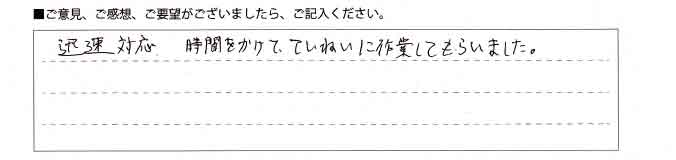 ■ご意見、ご感想、ご要望がございましたら、ご記入ください。
迅速対応 時間をかけて、ていねいに作業してもらいました。